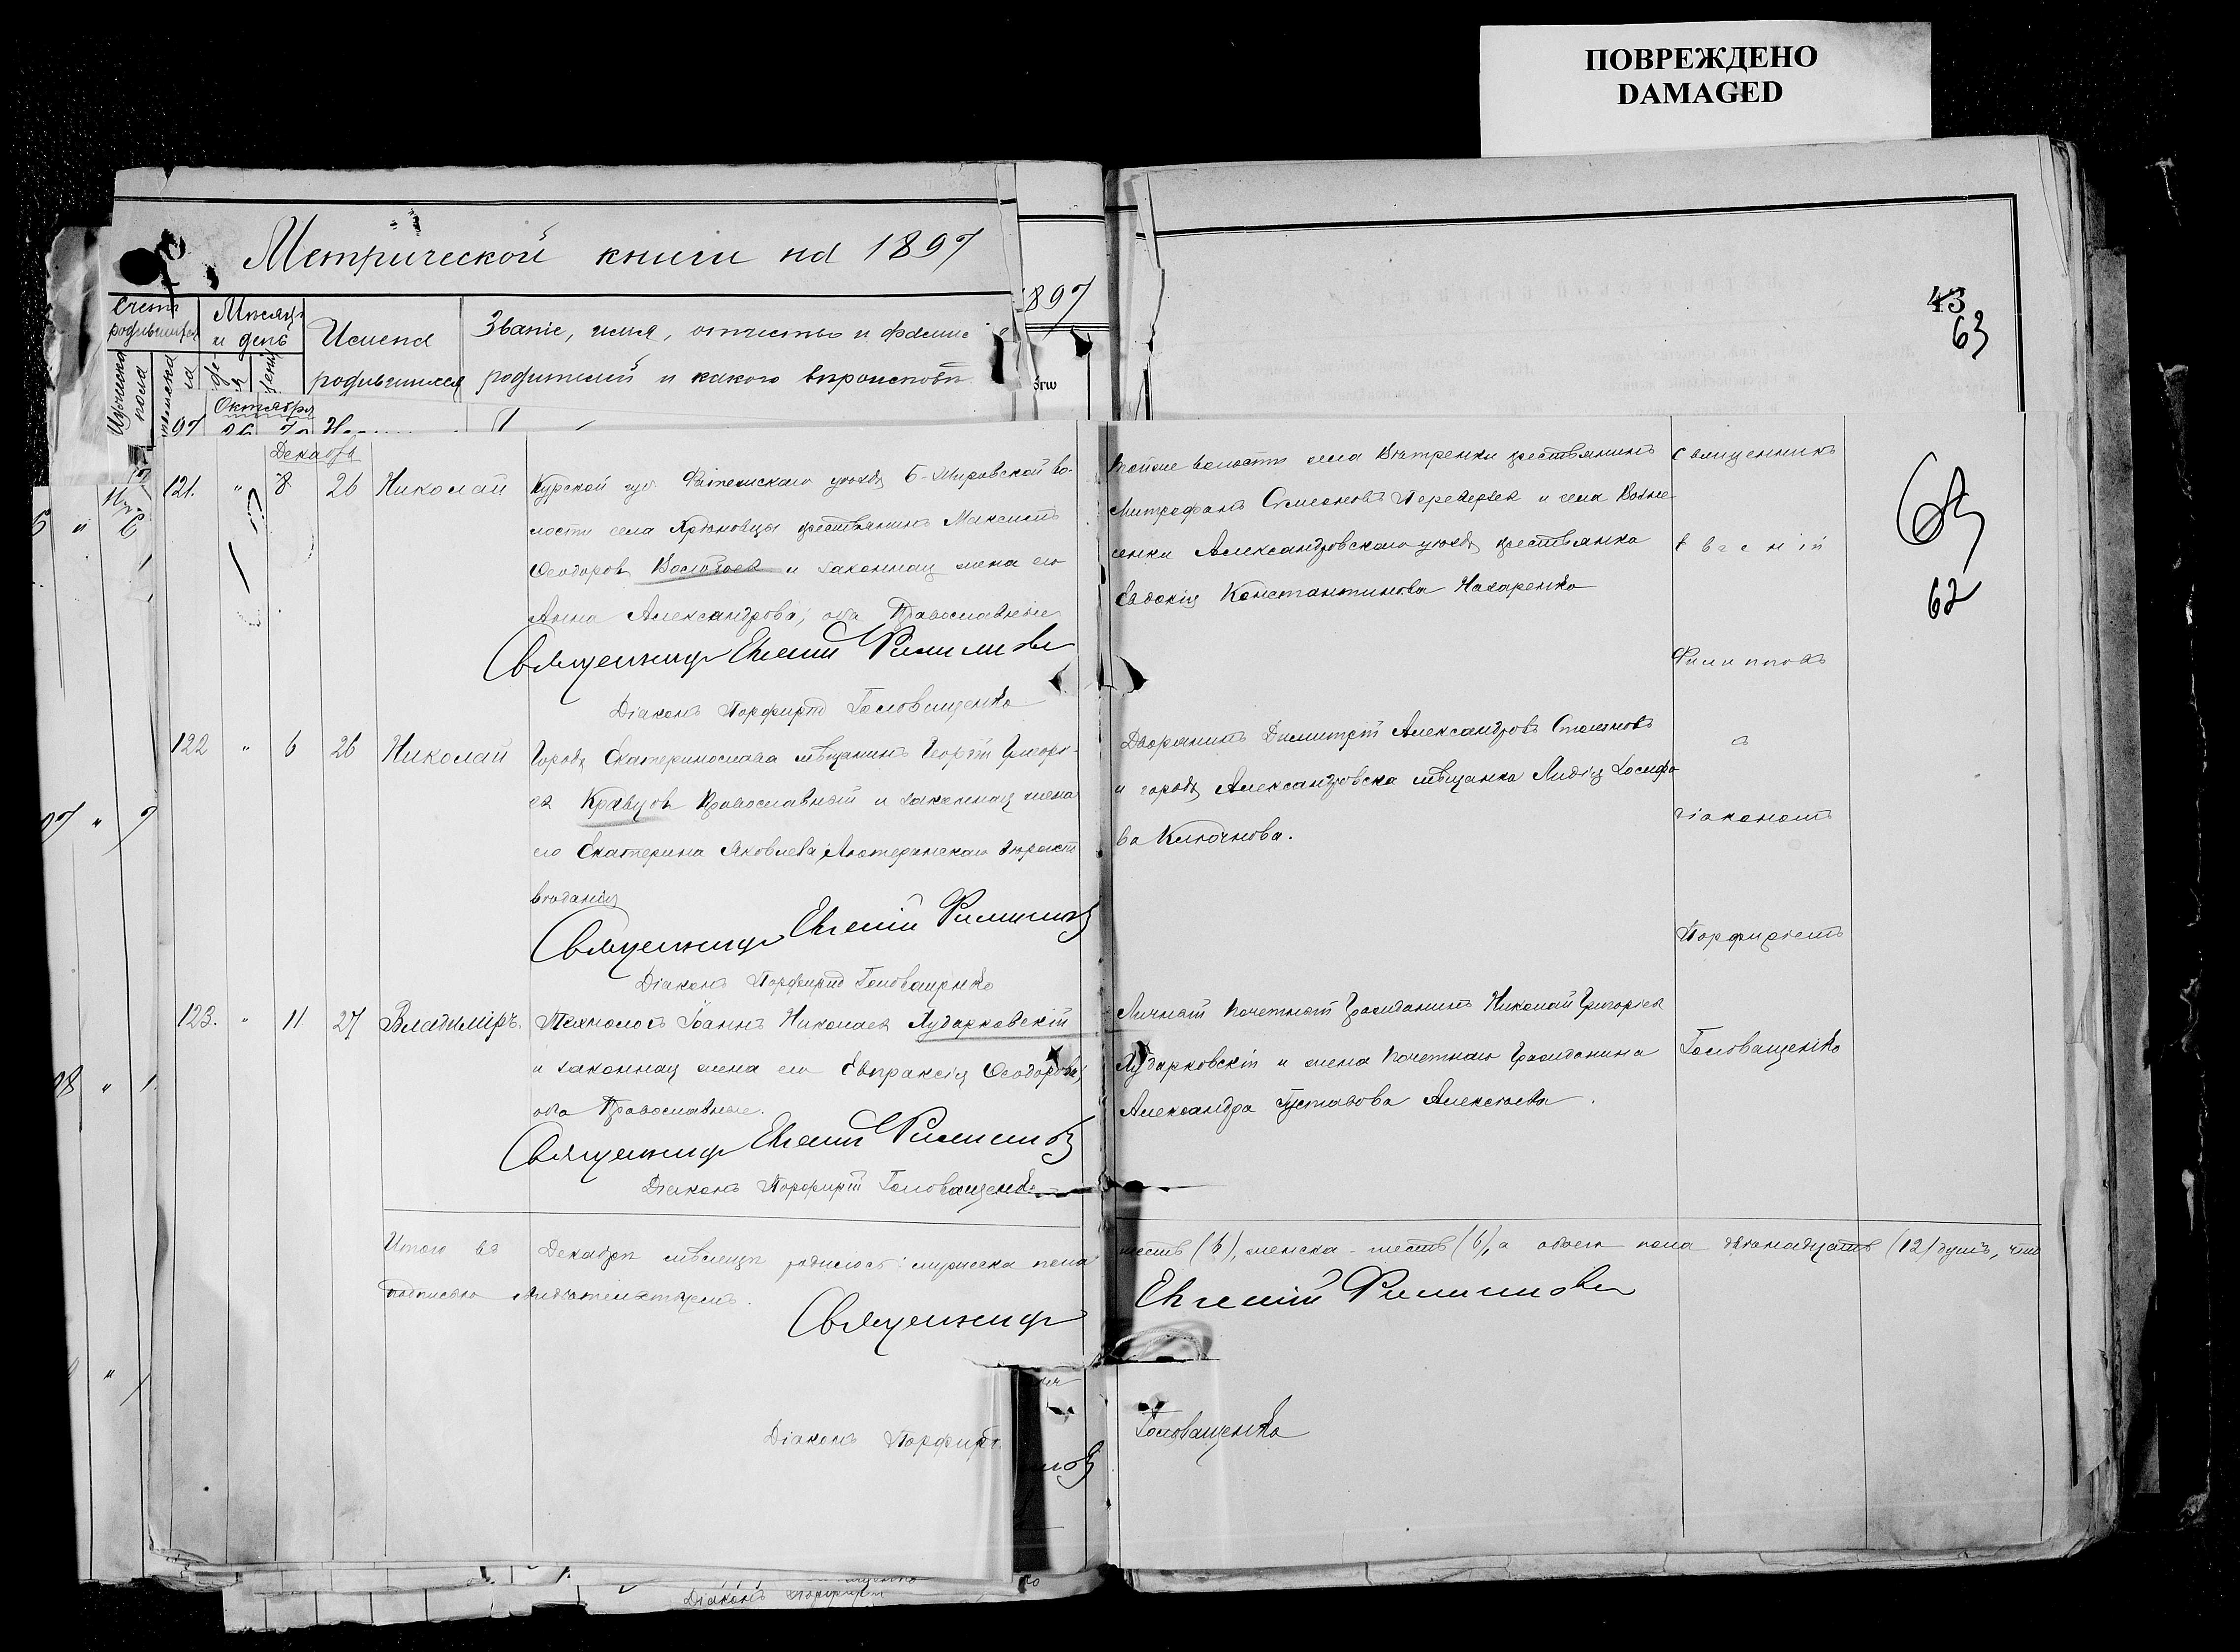 ПОВРЕЖДЕНО
DAMAGED
Метрической книги на 1897
1897
43
63
Счетъ родившихся
Мѣсяцъ и день
Имена родившихся
Званіе, имя, отчество и фамил
родителей и какого вѣроисповѣ
Мужеска пола
Октября
97 26
Декабрь
121. " 8 26 Николай
Курской губ. Фатежскаго уѣзда во-
лости села крестьянинъ Максимъ
Ѳеодоровъ и законная жена его
Анна Александрова; оба Православные
Священникъ Евгеній Филиповъ
Діаконъ Порфирій Головащенко
122 " 6 26 Николай
Города Екатеринослава мѣщанинъ Георгій Григорь-
евъ Кравцовъ Православный и законная жена
его Екатерина Яковлева Лютеранскаго вѣроиспо
вѣданія
Священникъ Евгеній Филиповъ
Діаконъ Порфирій Головащенко
123. " 11. 27 Владиміръ.
Технологъ Іоаннъ Николаевъ Лударковскій
и законная жена его Евпраксія Ѳеодорова;
оба Православные.
Священникъ Евгеній Филиповъ
Діаконъ Порфирій Головащенко
Итого въ Декабрѣ мѣсяцѣ родилось: мужеска пола
подписью свидѣтельствуемъ.
Священникъ
Діаконъ Порфирій
Діаконъ Порфирій
Тойже волости села крестьянинъ
Митрофанъ Симеоновъ Переверзевъ и села Возне
сенки Александровскаго уѣзда крестьянка
Евдокія Константинова Назаренко
Дворянинъ Димитрій Александровъ
и города Александровска мѣщанка Лидія Іосифо
ва Ключнова.
Личный Почетный Гражданинъ Николай Григорьевъ
Лударковскій и жена Почетнаго Гражданина
Александра Густавова Алексѣева.
Священникъ
Евгеній
Филиповъ
съ
діакономъ
Порфиріемъ
Головащенко
63
62
шесть (6), женска - шесть (6), а обоего пола двѣнадцать (12) душъ, что
Евгеній Филиповъ
Головащенко